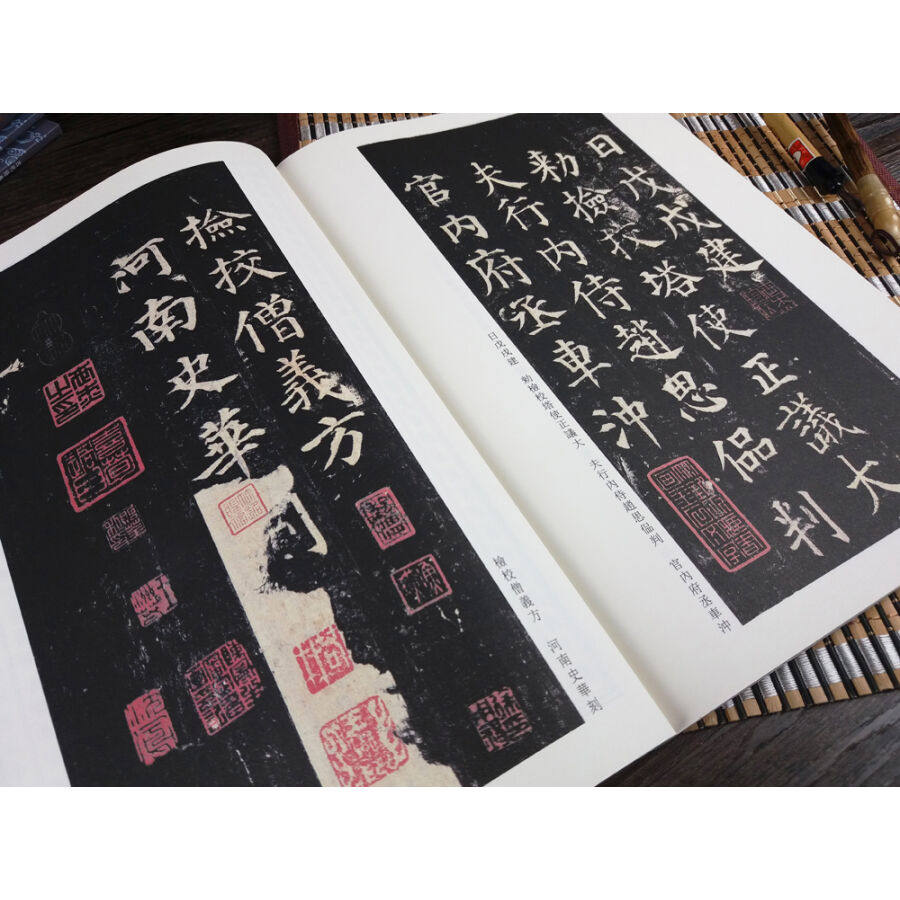 日戊戌建
勅撿挍塔使正議大
夫行内侍趙思偘判
官内府丞車沖
日戊戌建 勅檢校塔使正議大 夫行内侍趙思偘判 官内府丞車沖
撿挍僧義方
河南史華
檢校僧義方 河南史華刻